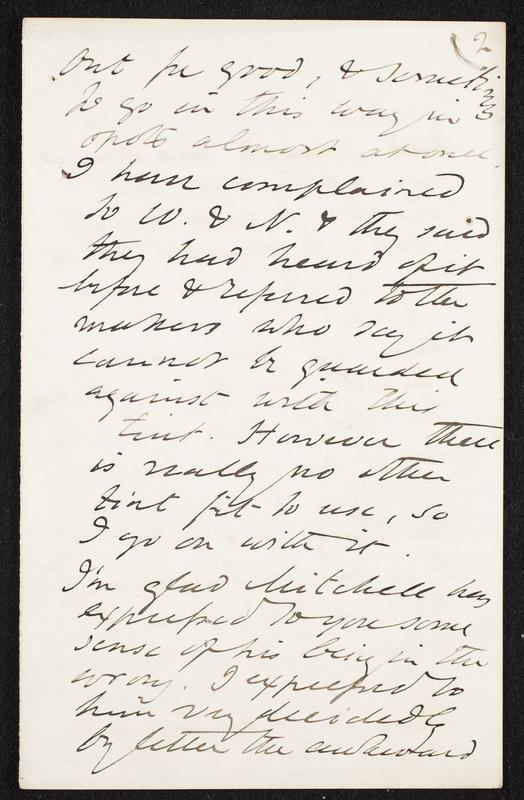 2
out for good, & sometimes
to go in this way in
spots almost at once.
I have complained
to W. & N. & they said
they had heard of it
before & referred to the
makers who say it
cannot be guarded
against with this
tint. However there
is really no other
tint fit to use, so
I go on with it.
I'm glad Mitchell has
expressed to you some
sense of his being in the
wrong. I expressed to
him very decidedly
by letter the awkward